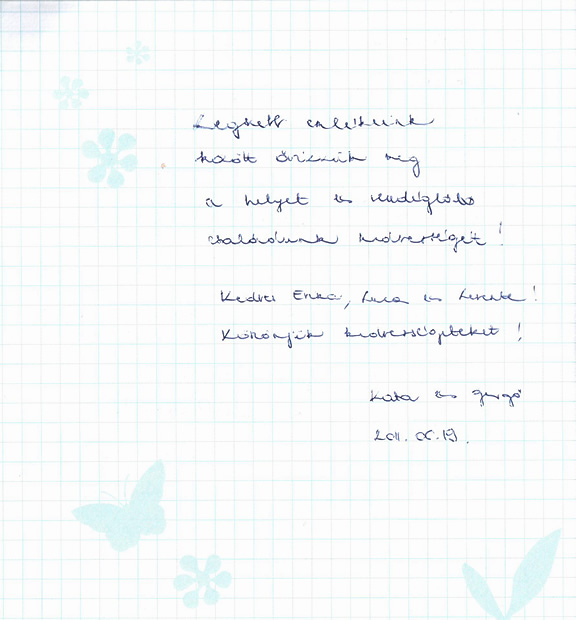 Legszebb emlékeink
között őrizzük meg
a helyet és vendéglátó
családunk kedvességét!
Kedves Erika, Luca és Levente!
Köszönjük kedvességeteket!
Kata és Gergő
2011. 06. 19.